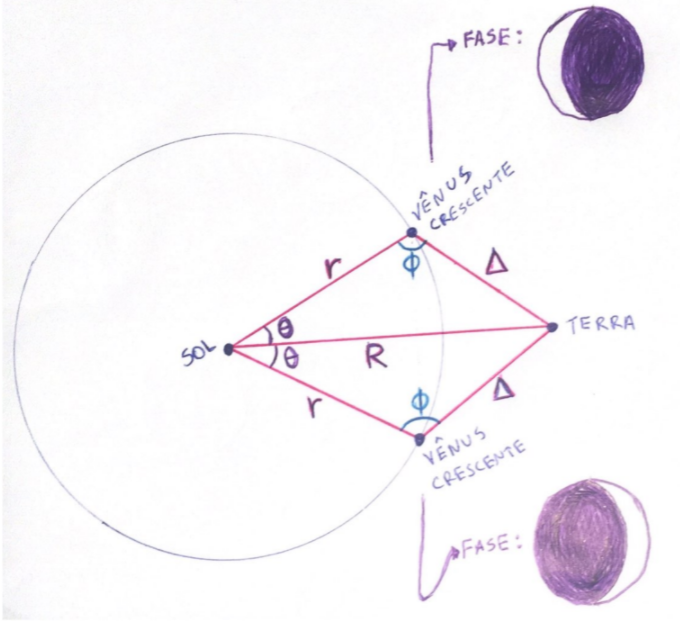 FASE:
VÊNUS
CRESCENTE
r
Φ
Δ
θ
SOL
θ
R
TERRA
r
Φ
Δ
VÊNUS
CRESCENTE
FASE: